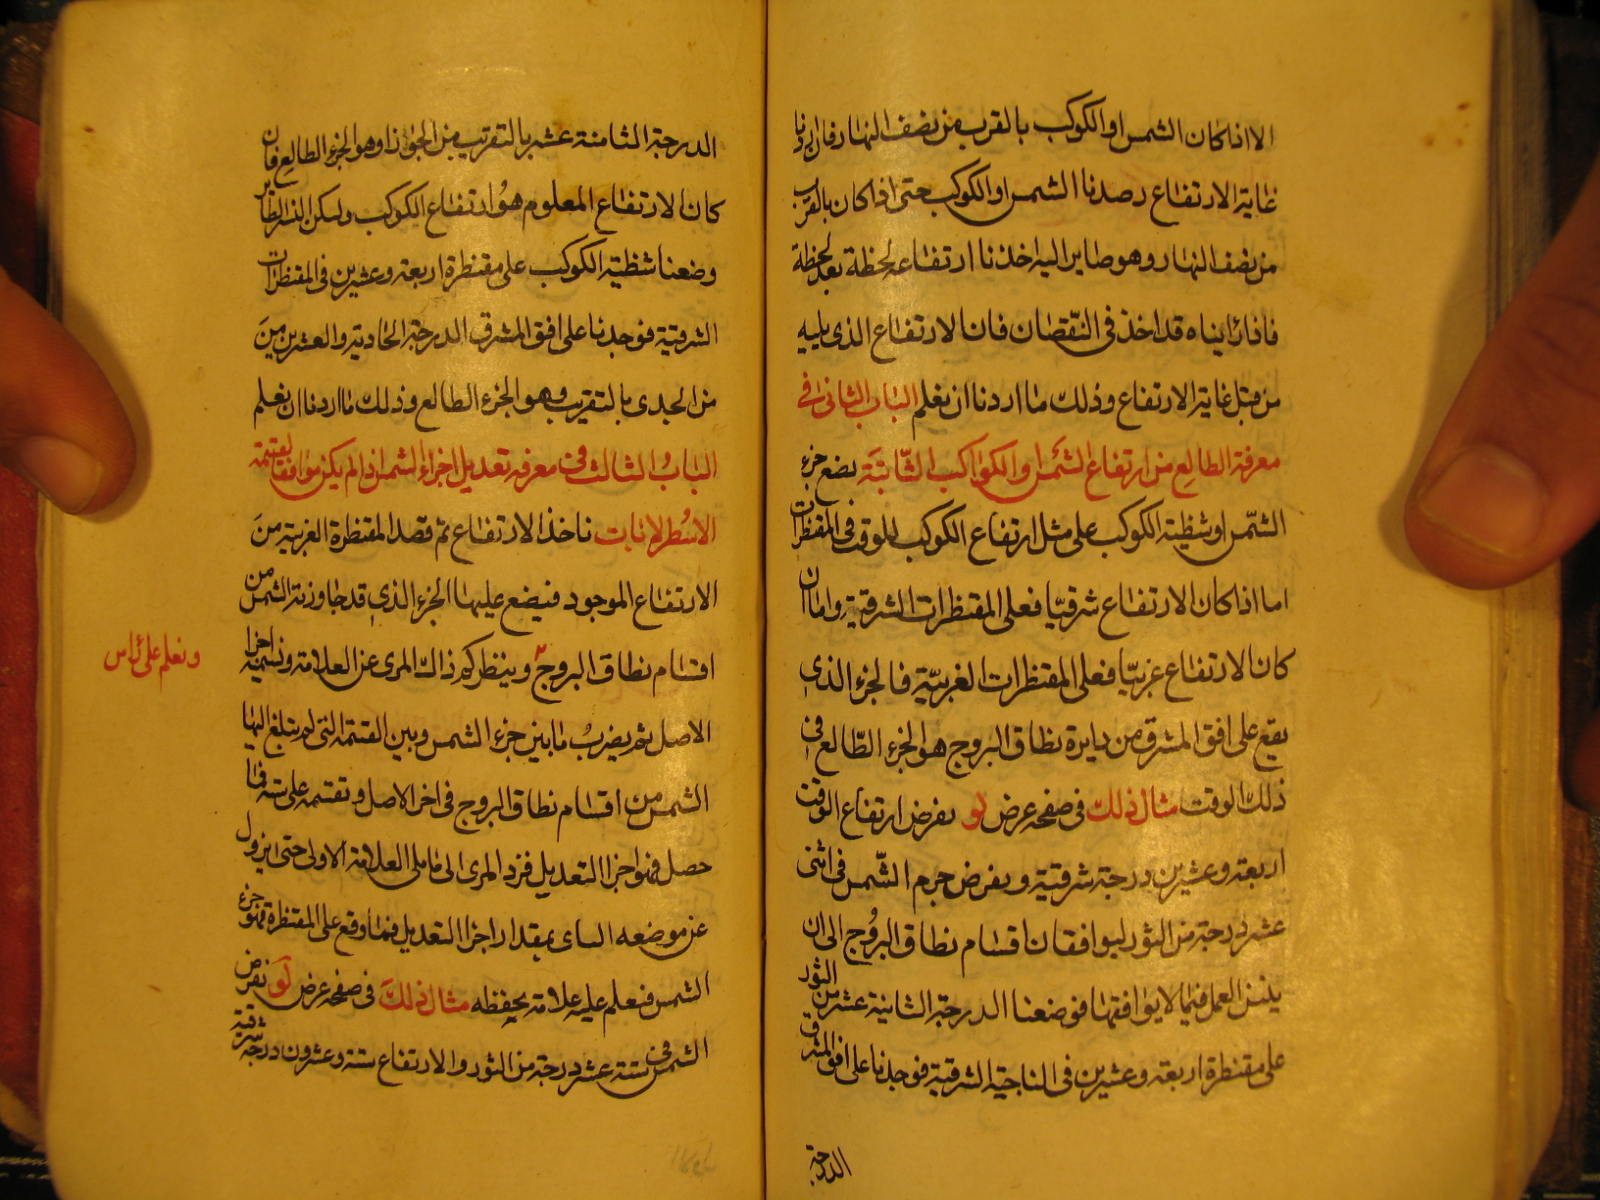 الا اذا كان الشمس او الكوكب بالقرب من نصف النهار فان اردنا
غاية الارتفاع رصدنا الشمس او الكوكب حتى اذا كان بالقرب
من نصف النهار وهو صاير اليه اخذنا ارتفاعه لحظة بعد لحظة
فاذا رايناه قد اخذ فى النّقصان فان الارتفاع الذى يليه
من قبل غاية الارتفاع وذلك ما اردنا ان نعلم الباب الثانى فى
معرفة الطالع من ارتفاع الشمس والكواكب الثّابتة يضع جزء
الشّمس او شظية الكوكب على مثل ارتفاع الكوكب للوقت فى المقنطرات
اما اذا كان الارتفاع شرقيّا فعلى المقنطرات الشرقية واما ان
كان الارتفاع غربيّا فعلى المقنطرات الغربيّة فالجزء الذى
يقع على افق المشرق من دايرة نطاق البروج هو الجزء الطّالع فى
ذلك الوقت مثال ذلك فى صفحة عرض لو نفرض ارتفاع الوقت
اربعة وعشرين درجة شرقية ونفرض جرم الشّمس فى اثنى
عشر درجة من الثور ليوافق ان اقسام نطاق البروج الى ان
يتبين العمل فيما لا يوافقها فوضعنا الدرجة الثانية عشر من الثور
على مقنطرة اربعة وعشرين فى الناحية الشرقية فوجدنا على افق المشرق
الدرجة
الدرجة الثامنة عشر بالتقريب من الجوزا وهو الجزء الطالع فان
كان الارتفاع المعلوم هو ارتفاع الكوكب وليكن النسر الطاير
وضعنا شظية الكوكب على مقنطرة اربعة وعشرين فى المقنطرات
الشرقية فوجدنا على افق المشرق الدرجة الحادية والعشرين من
من الجدى بالتقريب وهو الجزء الطالع وذلك ما اردنا ان نعلم
الباب الثالث فى معرفة تعديل اجزاء الشمس اذا لم يكن موافقا لقسمة
الاسطرلابات ناخذ الارتفاع ثم قصد المقنطرة الغربية من
الارتفاع الموجود فيضع عليها الجزء الذى قد جاوزته الشمس من
اقسام نطاق البروج وينظر كم ذاك المرى عن العلامة ونسميه اجزا
ونعلم على راس
الاصل ثم يضرب ما بين جزء الشمس وبين القسمة التى لم يبلغ اليها
الشمس من اقسام نطاق البروج فى اجزا الاصل ونقسمه على ستة فما
حصل فهو اجزا التعديل فرد المرى الى ما يلى العلامة الاولى حتى ايزول
عن موضعه بمقدار اجزا التعديل فما وقع على المقنطرة فهو جزء
الشمس فنعلم عليه علامة يحفظه مثال ذلك فى صفحة عرض لو نفرض
الشمس فى ستة عشر درجة من الثور والارتفاع ستة وعشرون درجة شرقية